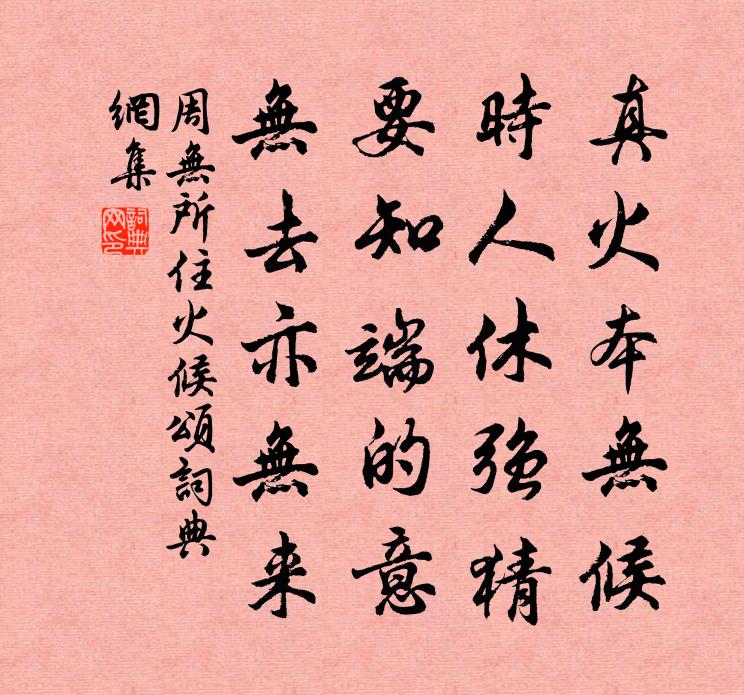 真火本無候
時人休強猜
要知端的意
無去亦無来
周無所住火候頌詞典
網集
詞典網印